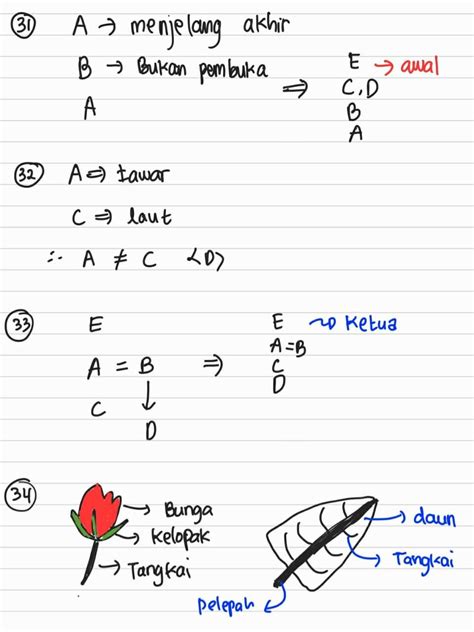 31 A → menjelang akhir
B → Bukan pembuka
A
⇒
E → awal
C, D
B
A
32 A ⇒ tawar
C ⇒ laut
∴ A ≠ C <D>
33 E
A = B
↓
C
D
⇒
E ⤳ Ketua
A = B
C
D
34 → Bunga
→ Kelopak
→ Tangkai
→ daun
→ Tangkai
pelepah ←